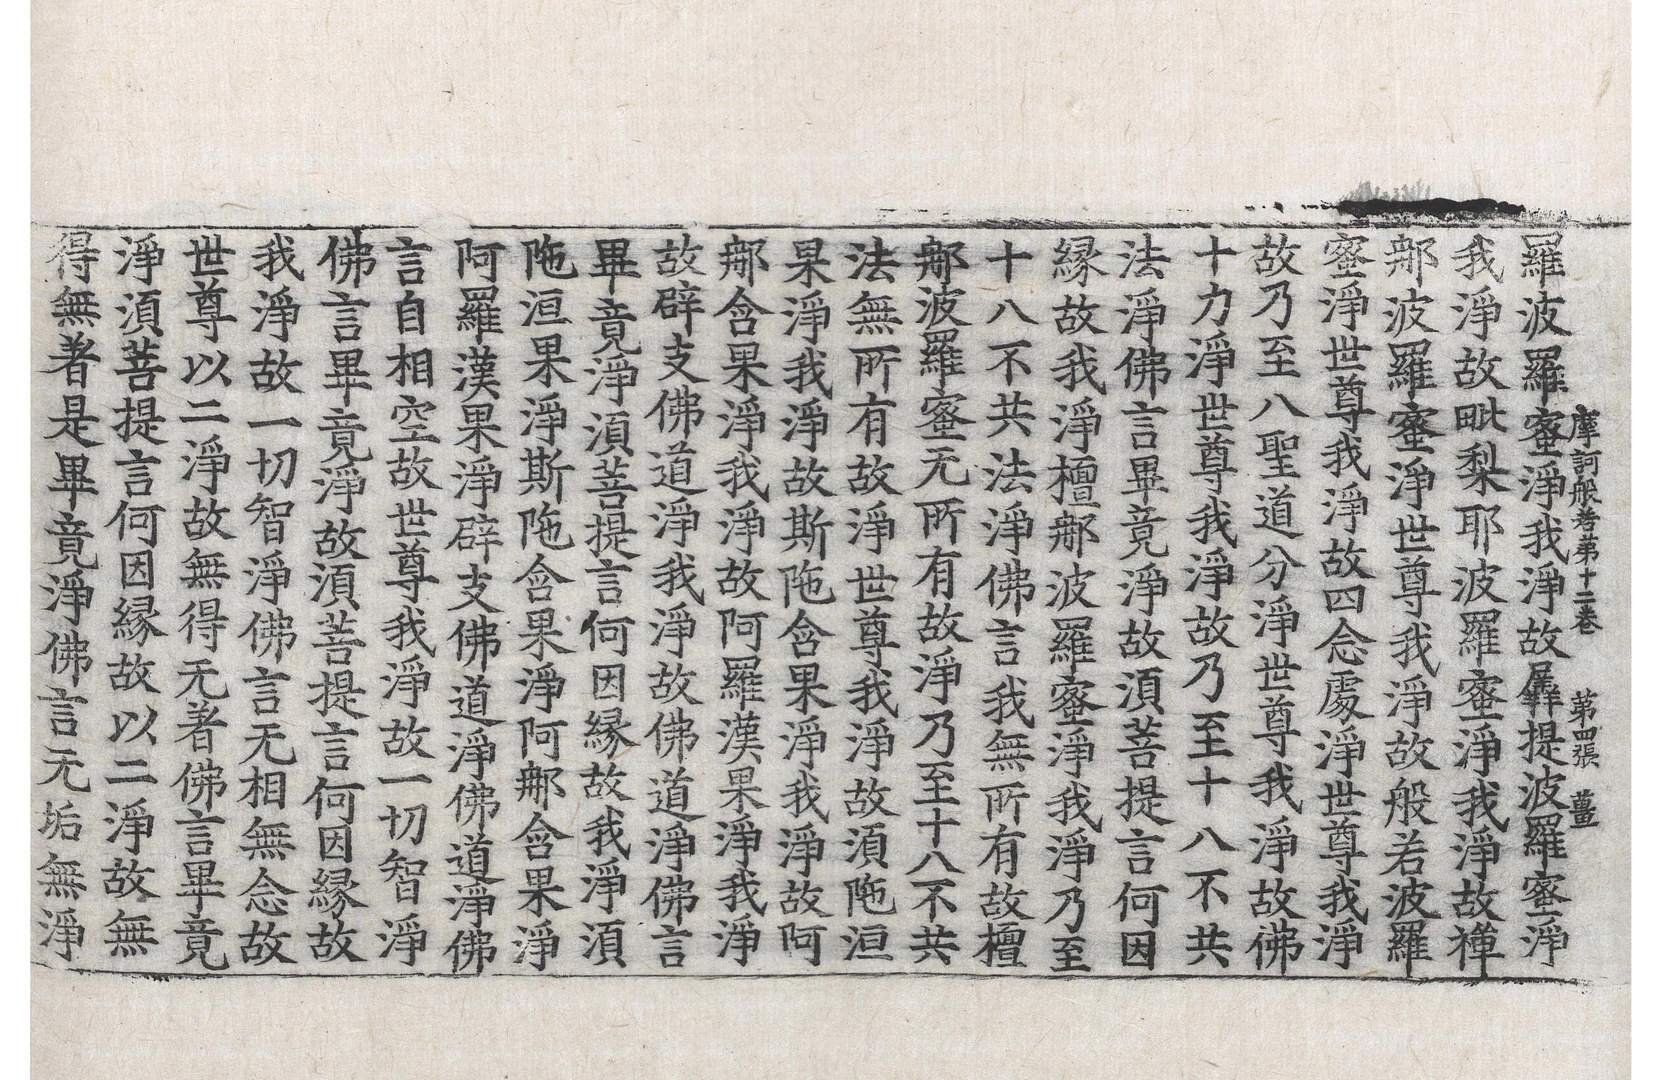 摩訶般若第十二卷　第四張　薑
羅波羅蜜淨我淨故羼提波羅蜜淨
我淨故毗梨耶波羅蜜淨我淨故禪
𨙻波羅蜜淨世尊我淨故般若波羅
蜜淨世尊我淨故四念處淨世尊我淨
故乃至八聖道分淨世尊我淨故佛
十力淨世尊我淨故乃至十八不共
法淨佛言畢竟淨故湏菩提言何因
縁故我淨檀𨙻波羅蜜淨我淨乃至
十八不共法淨佛言我無所有故檀
𨙻波羅蜜无所有故淨乃至十八不共
法無所有故淨世尊我淨故湏陁洹
果淨我淨故斯陁含果淨我淨故阿
𨙻含果淨我淨故阿羅漢果淨我淨
故辟支佛道淨我淨故佛道淨佛言
畢竟淨湏菩提言何因縁故我淨湏
陁洹果淨斯陁含果淨阿𨙻含果淨
阿羅漢果淨辟支佛道淨佛道淨佛
言自相空故世尊我淨故一切智淨
佛言畢竟淨故湏菩提言何因縁故
我淨故一切智淨佛言无相無念故
世尊以二淨故無得无著佛言畢竟
淨湏菩提言何因縁故以二淨故無
得無著是畢竟淨佛言无垢無淨